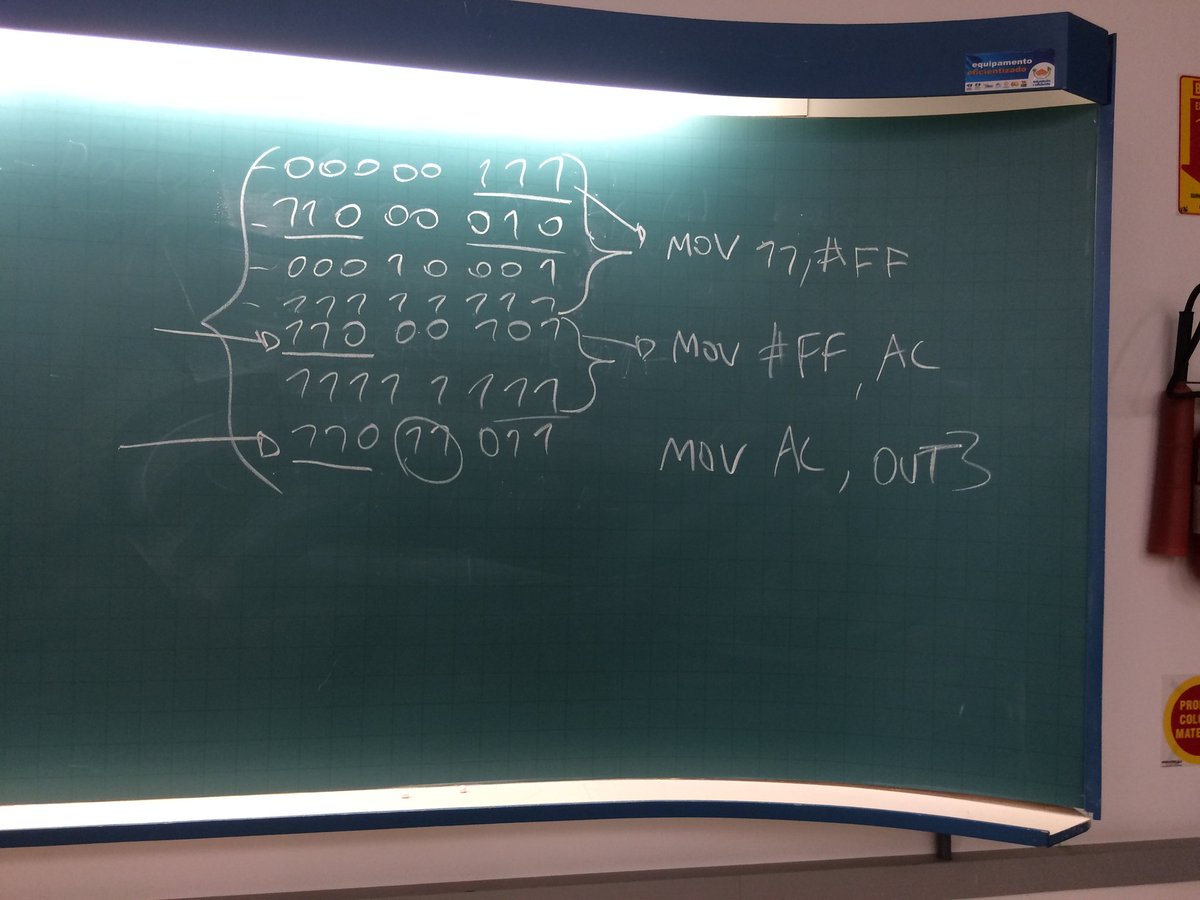 - 00000 111
- 110 00 010
- 000 10 001
- 111 11 111
110 00 101
1111 1 111
110 11 011
MOV 11, #FF
MOV #FF, AC
MOV AC, OUT3
equipamento
eficientizado